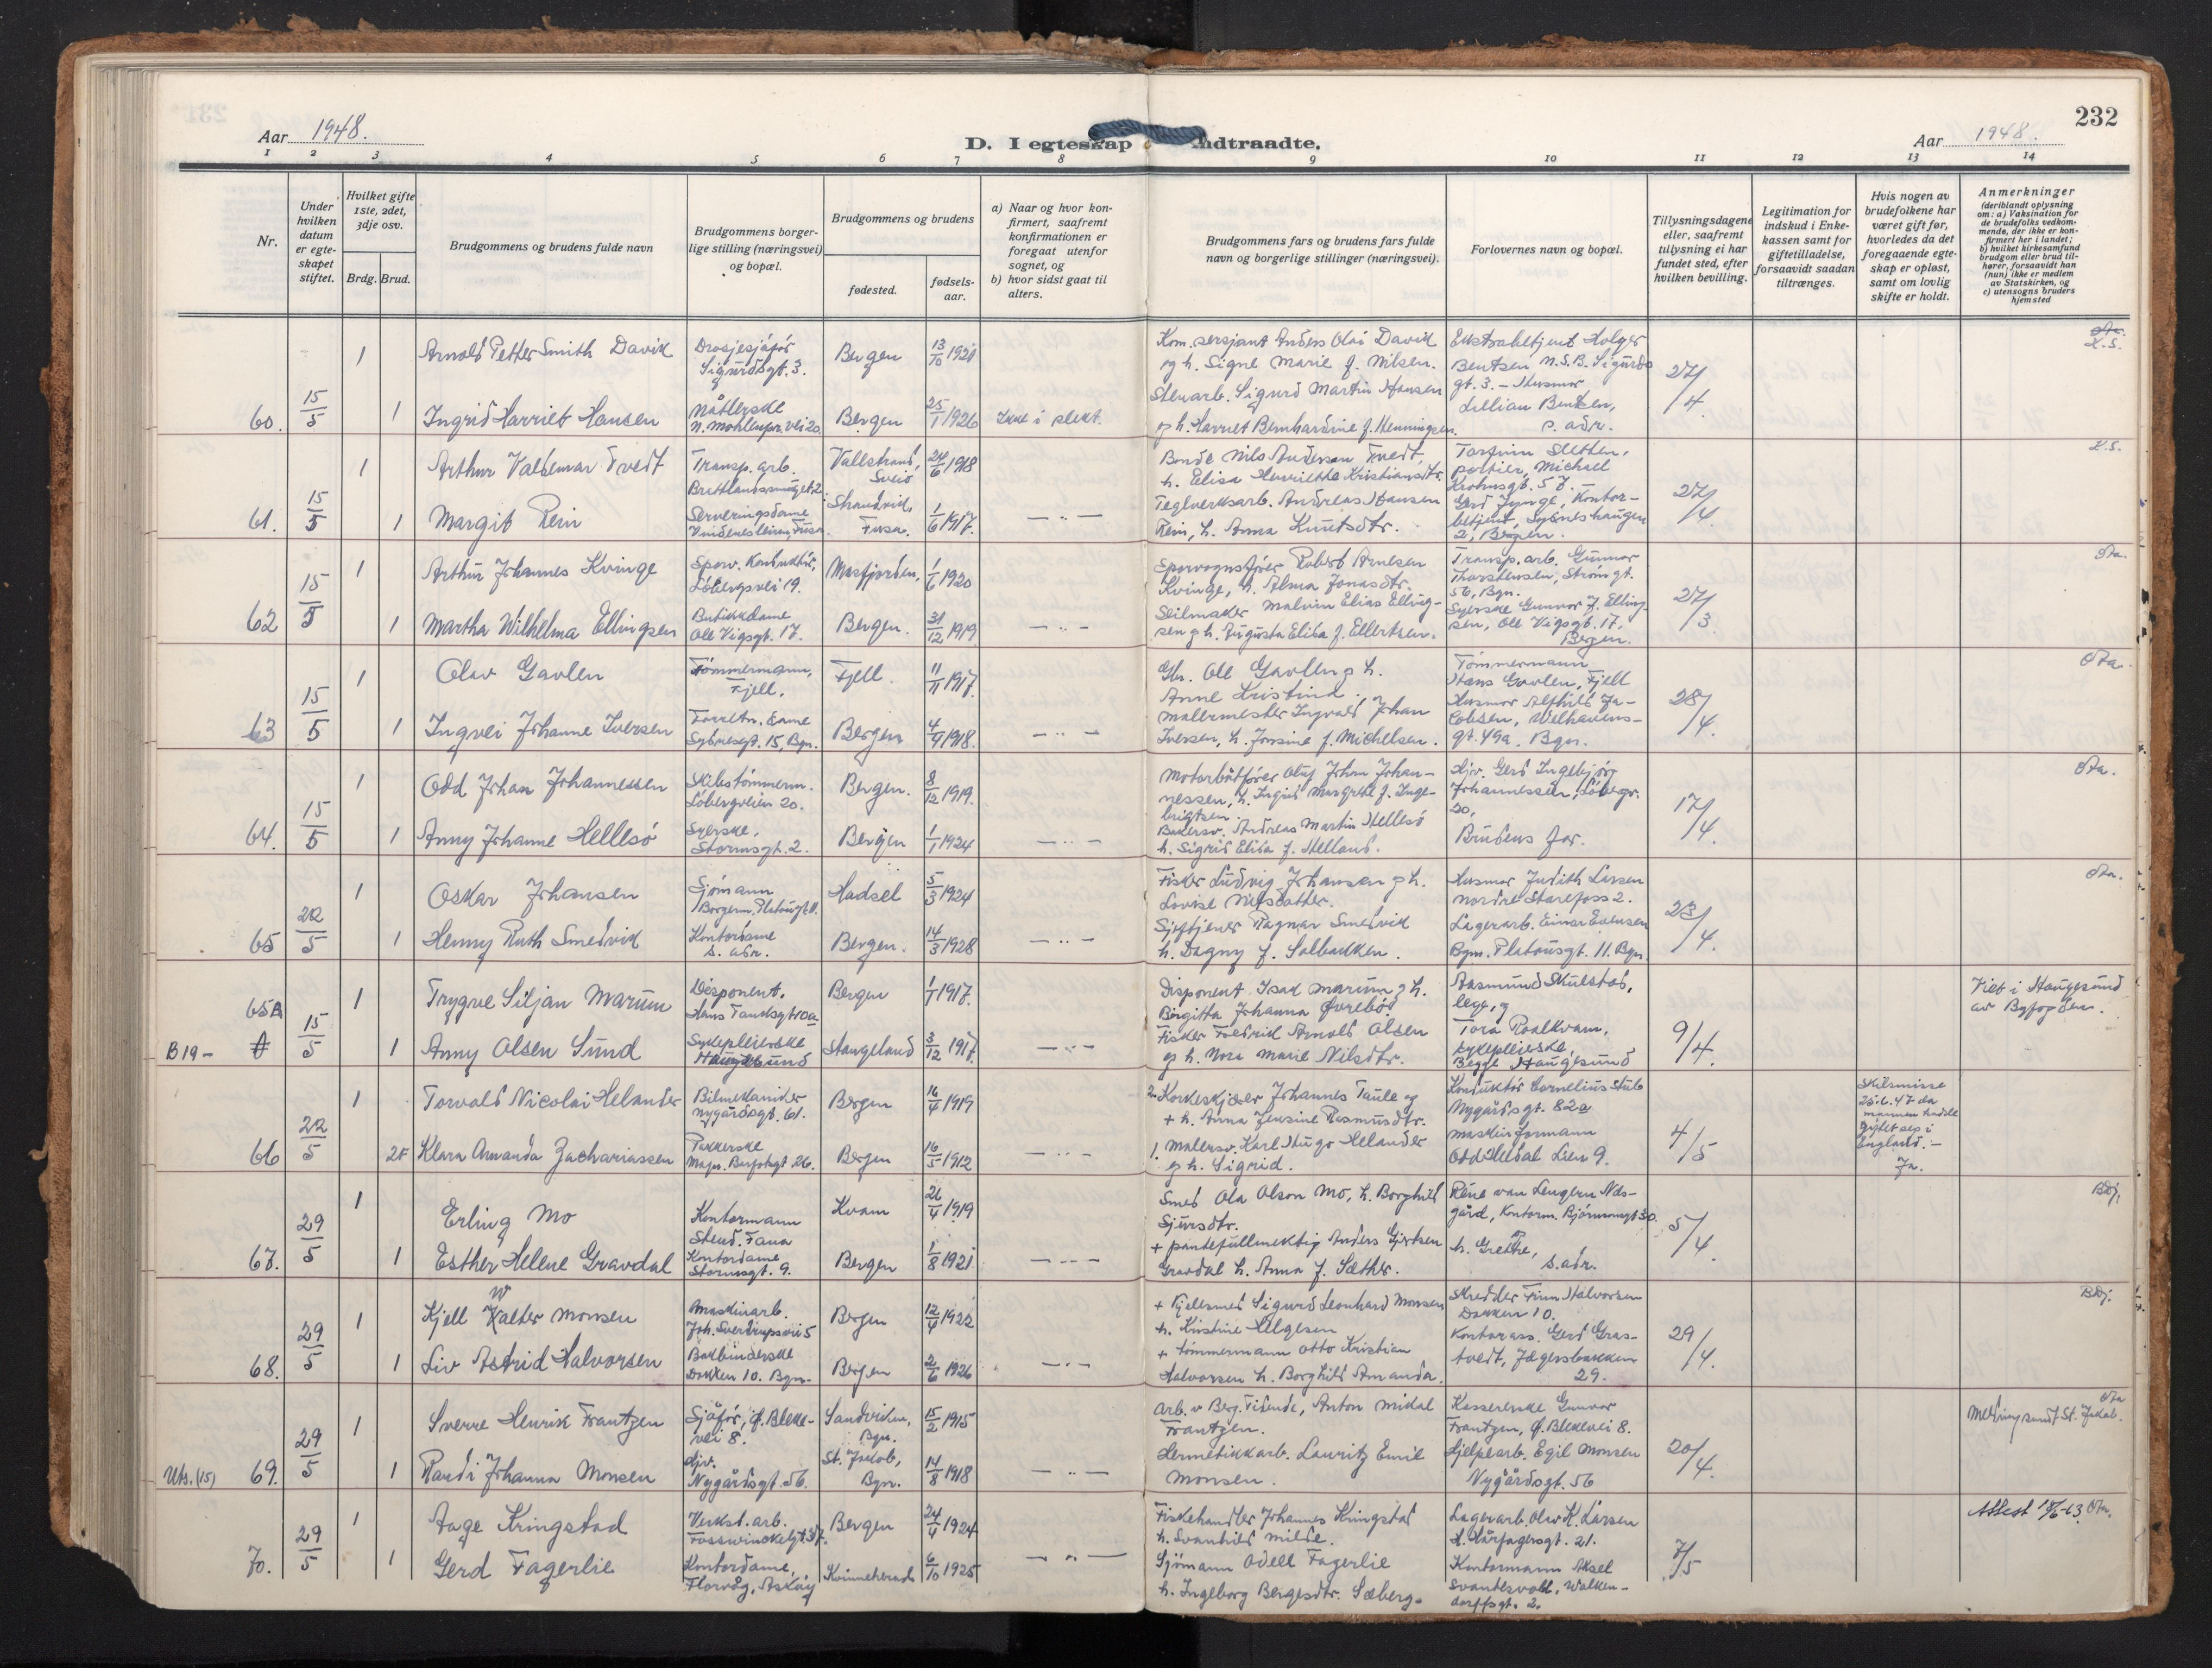 232
Aar 1948.
D. I egteskap indtraadte.
Aar 1948.
1 2 3 4 5 6 7 8 9 10 11 12 13 14
Nr.
Under hvilken datum er egteskapet stiftet.
Hvilket gifte 1ste, 2det, 3dje osv.
Brdg. Brud.
Brudgommens og brudens fulde navn
Brudgommens borgerlige stilling (næringsvei) og bopæl.
Brudgommens og brudens
fødested.
fødselsaar.
a) Naar og hvor konfirmert, saafremt konfirmationen er foregaat utenfor sognet, og
b) hvor sidst gaat til alters.
Brudgommens fars og brudens fars fulde navn og borgerlige stillinger (næringsvei).
Forlovernes navn og bopæl.
Tillysningsdagene eller, saafremt tillysning ei har fundet sted, efter hvilken bevilling.
Legitimation for indskud i Enkekassen samt for giftetilladelse, forsaavidt saadan tiltrænges.
Hvis nogen av brudefolkene har været gift før, hvorledes da det foregaaende egteskap er opløst, samt om lovlig skifte er holdt.
Anmerkninger (deriblandt oplysning om: a) Vaksination for de brudefolks vedkommende, der ikke er konfirmert her i landet; b) hvilket kirkesamfund brudgom eller brud tilhører, forsaavidt han (hun) ikke er medlem av Statskirken, og c) utensogns bruders hjemsted
60. 15/5
1 Arnold Petter Smith David Drosjesjåfør Sigurdsgt. 3. Bergen 13/10 1921
1 Ingrid Harriet Hansen Nåtlerske N. Møhlenpr. vei 20 Bergen 25/1 1926 Ikke i slekt.
Kom. sersjant Anders Olai David og h. Signe Marie f. Nilsen.
Stenarb. Sigurd Martin Hansen og h. Harriet Bernhardine f. Henningsen.
Ekstrabetjent Holger Bentzen N.S.B. Sigurdsgt. 3. – Husmor Lillian Bentzen, s. adr.
27/4
K.S.
61. 15/5
1 Arthur Valdemar Tvedt Transp. arb. Vallstrand, Sveio 24/6 1918
1 Margit Rein Serveringsdame Strandvik, Fusa. 1/6 1917.
Bonde Nils Andersen Tvedt, h. Elisa Henriette Kristiansdtr.
Teglverksarb. Andreas Hansen Rein, h. Anna Knutsdtr.
Torfinn Sletten, portier, Michael Krohnsgt. 57. –
Gerd Lynge, Kontorbetjent, Sydneshaugen 2, Bergen.
27/4
K.S.
62 15/5
1 Arthur Johannes Kvinge Sporv. Konduktør, Løbergsvei 19. Masfjorden, 1/6 1920
1 Martha Wilhelma Ellingsen Butikkdame Ole Vigsgt. 17. Bergen. 31/12 1919
Sporvognsfører Robert Arnesen Kvinge, h. Alma Jonasdtr.
Seilmaker Malvin Elias Ellingsen og h. Augusta Elisa f. Ellertsen.
Transp. arb. Gunnar Thorstensen, Strømgt. 56, Bgn.
Syerske Gunvor f. Ellingsen, Ole Vigsgt. 17, Bergen.
27/3
63 15/5
1 Olav Gavlen Tømmermann, Fjell. Fjell. 11/11 1917.
1 Ingvei Johanne Iversen Forretn. dame Sydnesgt. 15, Bgn. Bergen 4/9 1918.
Gbr. Ole Gavlen og h. Anne Kristina.
Malermester Ingvald Johan Iversen, h. Jonsine f. Michelsen.
Tømmermann Hans Gavlen, Fjell
Husmor Alfhild Jacobsen, Welhavensgt. 49a, Bgn.
28/4.
64. 15/5
1 Odd Johan Johannessen Skibstømmerm. Løbergveien 20. Bergen. 8/12 1919.
1 Anny Johanne Hellesø Syerske. Stormsgt. 2. Bergen 1/1 1924
Motorbåtfører Oluf Johan Johannessen, h. Ingrid Margrete f. Ingebrigtsen.
Bakersv. Andreas Martin Hellesø h. Sigrid Elisa f. Helland.
Hjv. Gerd Ingebjørg Johannessen, Løbergv. 20,
Brudens far.
17/4
65 22/5
1 Oskar Johansen Sjømann Borgerm. Platousgt. 11. Hadsel 5/3 1924
1 Henny Ruth Smedvik Kontordame s. adr. Bergen. 14/3 1928
Fisker Ludvig Johansen og h. Lovise Nilsdatter.
Sjøftjener Ragnar Smedvik h. Dagny f. Solbakken.
Husmor Judith Larsen Nordre Starefoss 2.
Lagerarb. Einar Evensen Bgm. Platousgt. 11. Bgn.
23/4.
B 19 – 65A 15/5
1 Trygve Siljan Marum Disponent. Hans Tanksgt 10a Bergen 1/7 1917.
1 Anny Olsen Sund Sykepleierske Haugesund Stangeland 3/12 1917.
Disponent Isak Marum og h. Birgitta Johanna Øvrebø
Fisker Fredrik Arnold Olsen og h. Nora Marie Nilsdtr.
Aasmund Skulstad, lege, og
Tora Roalkvam, sykepleierske, Begge Haugesund
9/4.
Viet i Haugesund av Byfogden.
66 22/5
1 Torvald Nicolai Helander Bilmekaniker Nygårdsgt. 61. Bergen 16/4 1919
2F Klara Amanda Zachariassen Pakkerske Bergen 16/5 1912
2. Korkeskjærer Johannes Taule og + h. Anna Jensine Rasmusdtr.
1. Malersv. Karl Hugo Helander og h. Sigrid.
Konduktør Cornelius Stub Nygårdsgt. 82a
Maskinformann Odd Heldal Lien 9.
4/5
Skilsmisse 25.6.47 da mannen hadde giftet seg i England. – Ja.
67. 29/5
1 Erling Mo Kontormann Stend. Fana Kvam 26/4 1919
1 Esther Helene Gravdal Kontordame Stormsgt. 9. Bergen 1/8 1921
Smed Ola Olson Mo, h. Borghild Sjursdtr.
+ pantefullmektig Anders Gjertsen Gravdal h. Anna f. Sæther.
Rene van Lengern Ndsgård, Kontorm. Bjørnsonsgt 30. og h. Grethe, s. adr.
5/4
Bdj.
68. 29/5
1 Kjell Walter Monsen Maskinarb. Joh. Sverdrupsvei 5 Bergen 12/4 1922
1 Liv Astrid Halvorsen Bokbinderske Dokken 10. Bgn. Bergen 2/6 1926
+ Kjelesmed Sigurd Leonhard Monsen h. Kristine Helgesen
+ tømmermann Otto Kristian Halvorsen h. Borghild Amanda.
Skredder Finn Halvorsen Dokken 10.
Kontorass. Gerd Grastvedt, Jægersbakken 29.
29/4.
Bdj.
Uts. (15) 69. 29/5
1 Sverre Henrik Frantzen Sjåfør, Q. Blekevei 8. Sandviken, Bgn. 15/2 1915
1 Randi Johanna Monsen Hjv. Nygårdsgt. 56. St. Jakob, Bgn. 14/8 1918
Arb. v Berg. Tidende, Anton Mikal Frantzen.
Hermetikkarb. Lauritz Emil Monsen.
Kassererske Gunvor Frantzen, Q. Blekevei 8.
Hjelpearb. Egil Monsen Nygårdsgt. 56
20/4.
Melding sendt St. Jakob.
70. 29/5
1 Aage Kringstad Verkst. arb. Fosswinckelsgt 37. Bergen 24/4 1924
1 Gerd Fagerlie Kontordame, Florvåg, Askøy Kvinneherad 6/10 1925
Fiskehandler Johannes Kringstad h. Svanhild Milde.
Sjømann Odell Fagerlie h. Ingeborg Bergesdtr. Sæberg.
Lagerarb. Olav K. Larsen H. Hårfagersgt. 21.
Kontormann Aksel Svantesvold, Walkendorffsgt. 2.
7/5